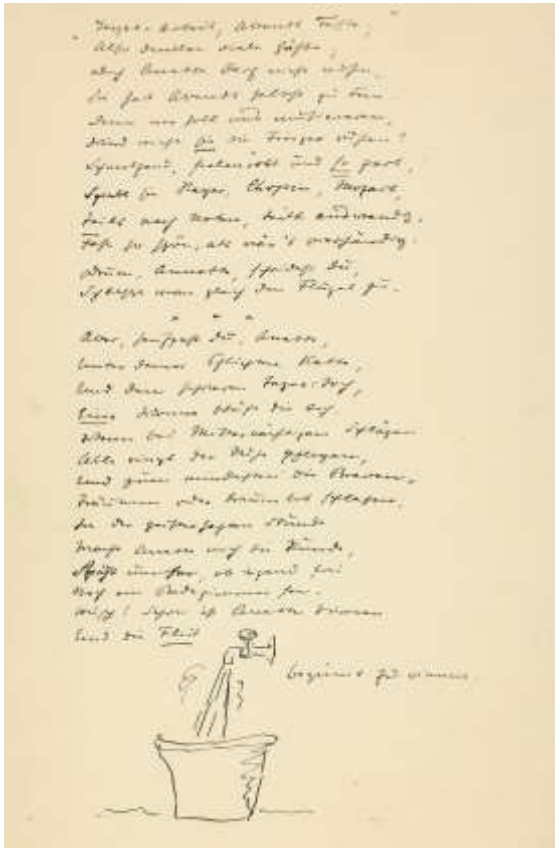 "Tages Arbeit, Abends Gäste,"
Also denken viele Gäste,
doch Annette darf nicht ruhn.
Sie hat Abends selbst zu tun.
Denn wer soll uns musizieren,
Wenn nicht sie die Finger rühren?
und so zart,
Spielt sie Reger, Chopin, Mozart,
teils nach Noten, teils auswendig,
Fast so schön, als wär's
Drum, Annette, scheidest Du,
Schließt man gleich den Flügel zu.
Aber, seufzest du, Annette,
Unter deiner Kette,
Und dem schweren Tages-Joch,
Eine Wonne blüht dir doch
Wenn bei Mitternächtigen Schlägen
Alles rings der Ruhe pflegen,
Und zum mindesten die Braven,
Träumen oder traumlos schlafen,
In der Stunde
Macht Annette noch die Runde,
ob irgend frei
Noch ein Badezimmer sei.
Husch! Schon ist Annette drinnen
Und die Flut
beginnt zu rinnen.